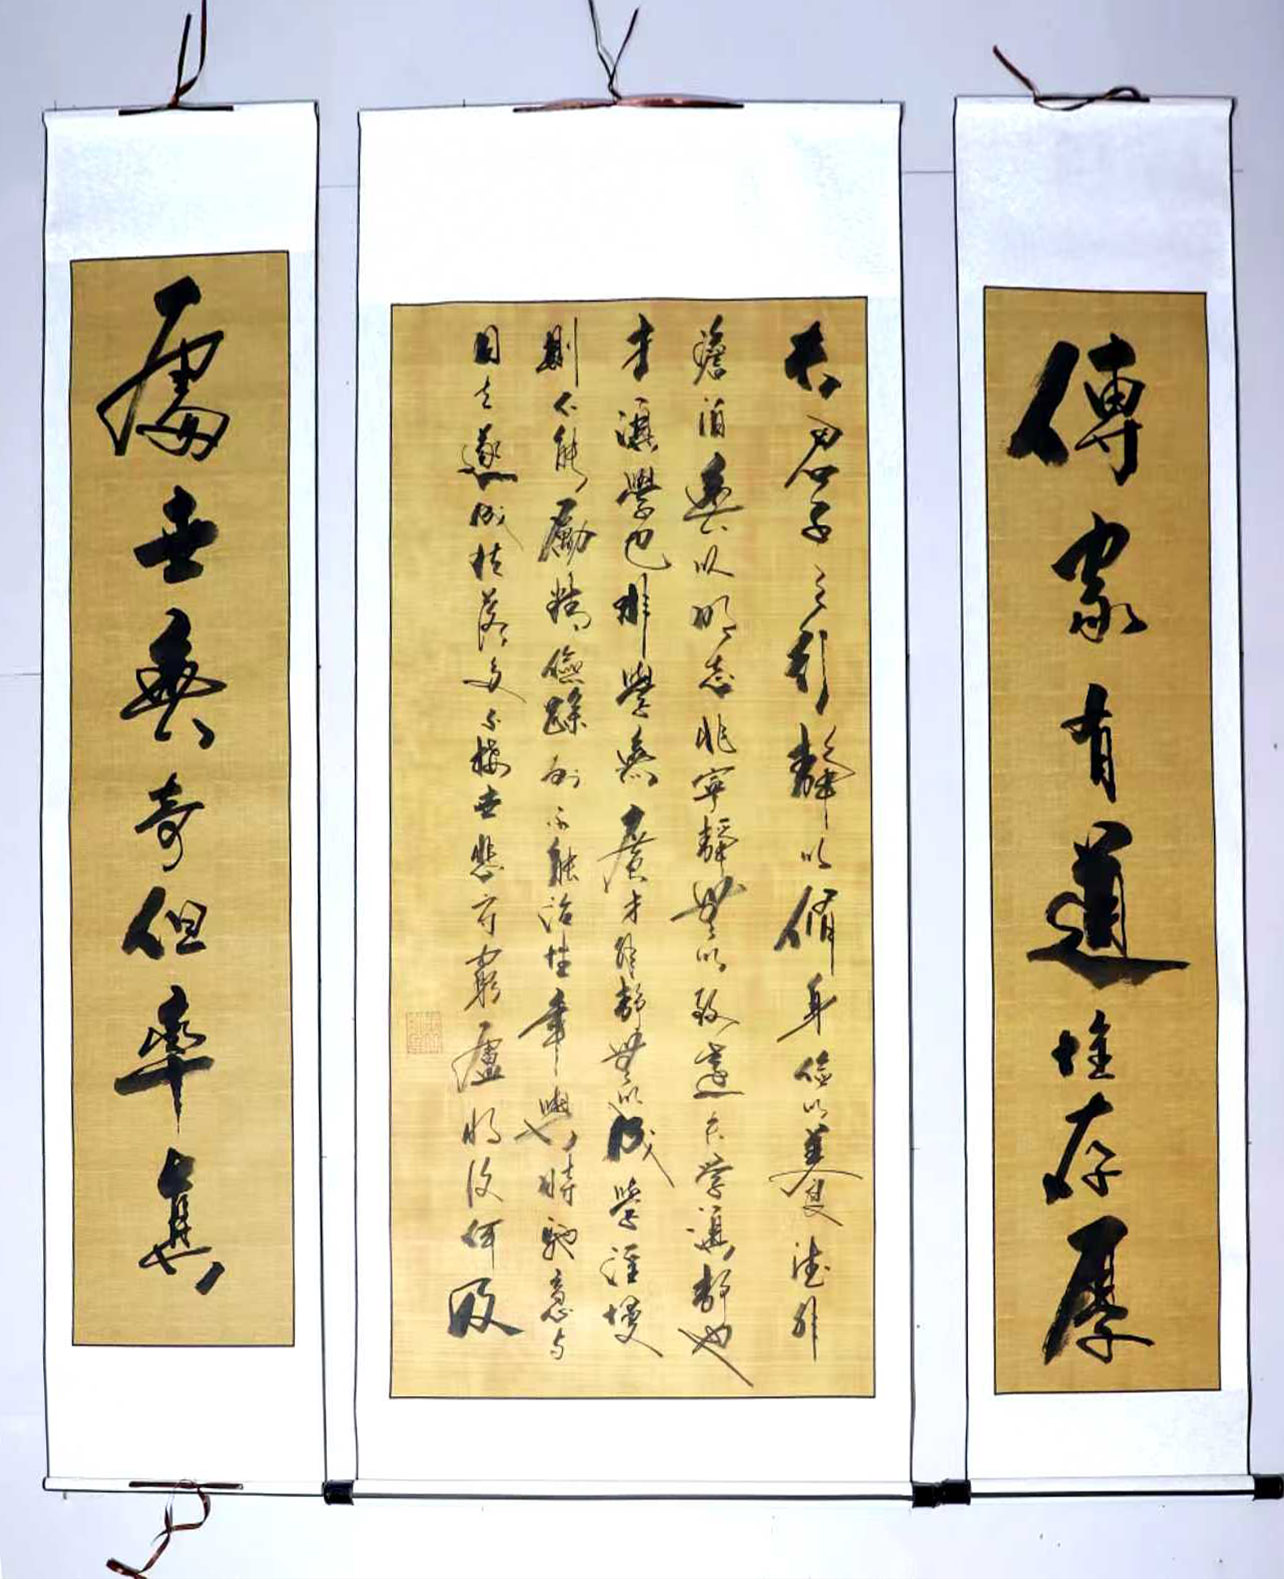 傳家有道惟存厚
夫君子之行靜以脩身儉以養德非
澹泊無以明志非寧靜無以致遠夫學須靜也
才須學也非學無廣才非靜無以成學淫慢
則不能勵精險躁則不能治性年與時馳意與
日去遂成枯落多不接世悲守窮廬將復何及
處世無奇但率真